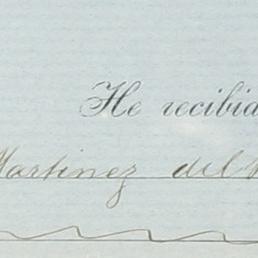 He recibid
Martinez del